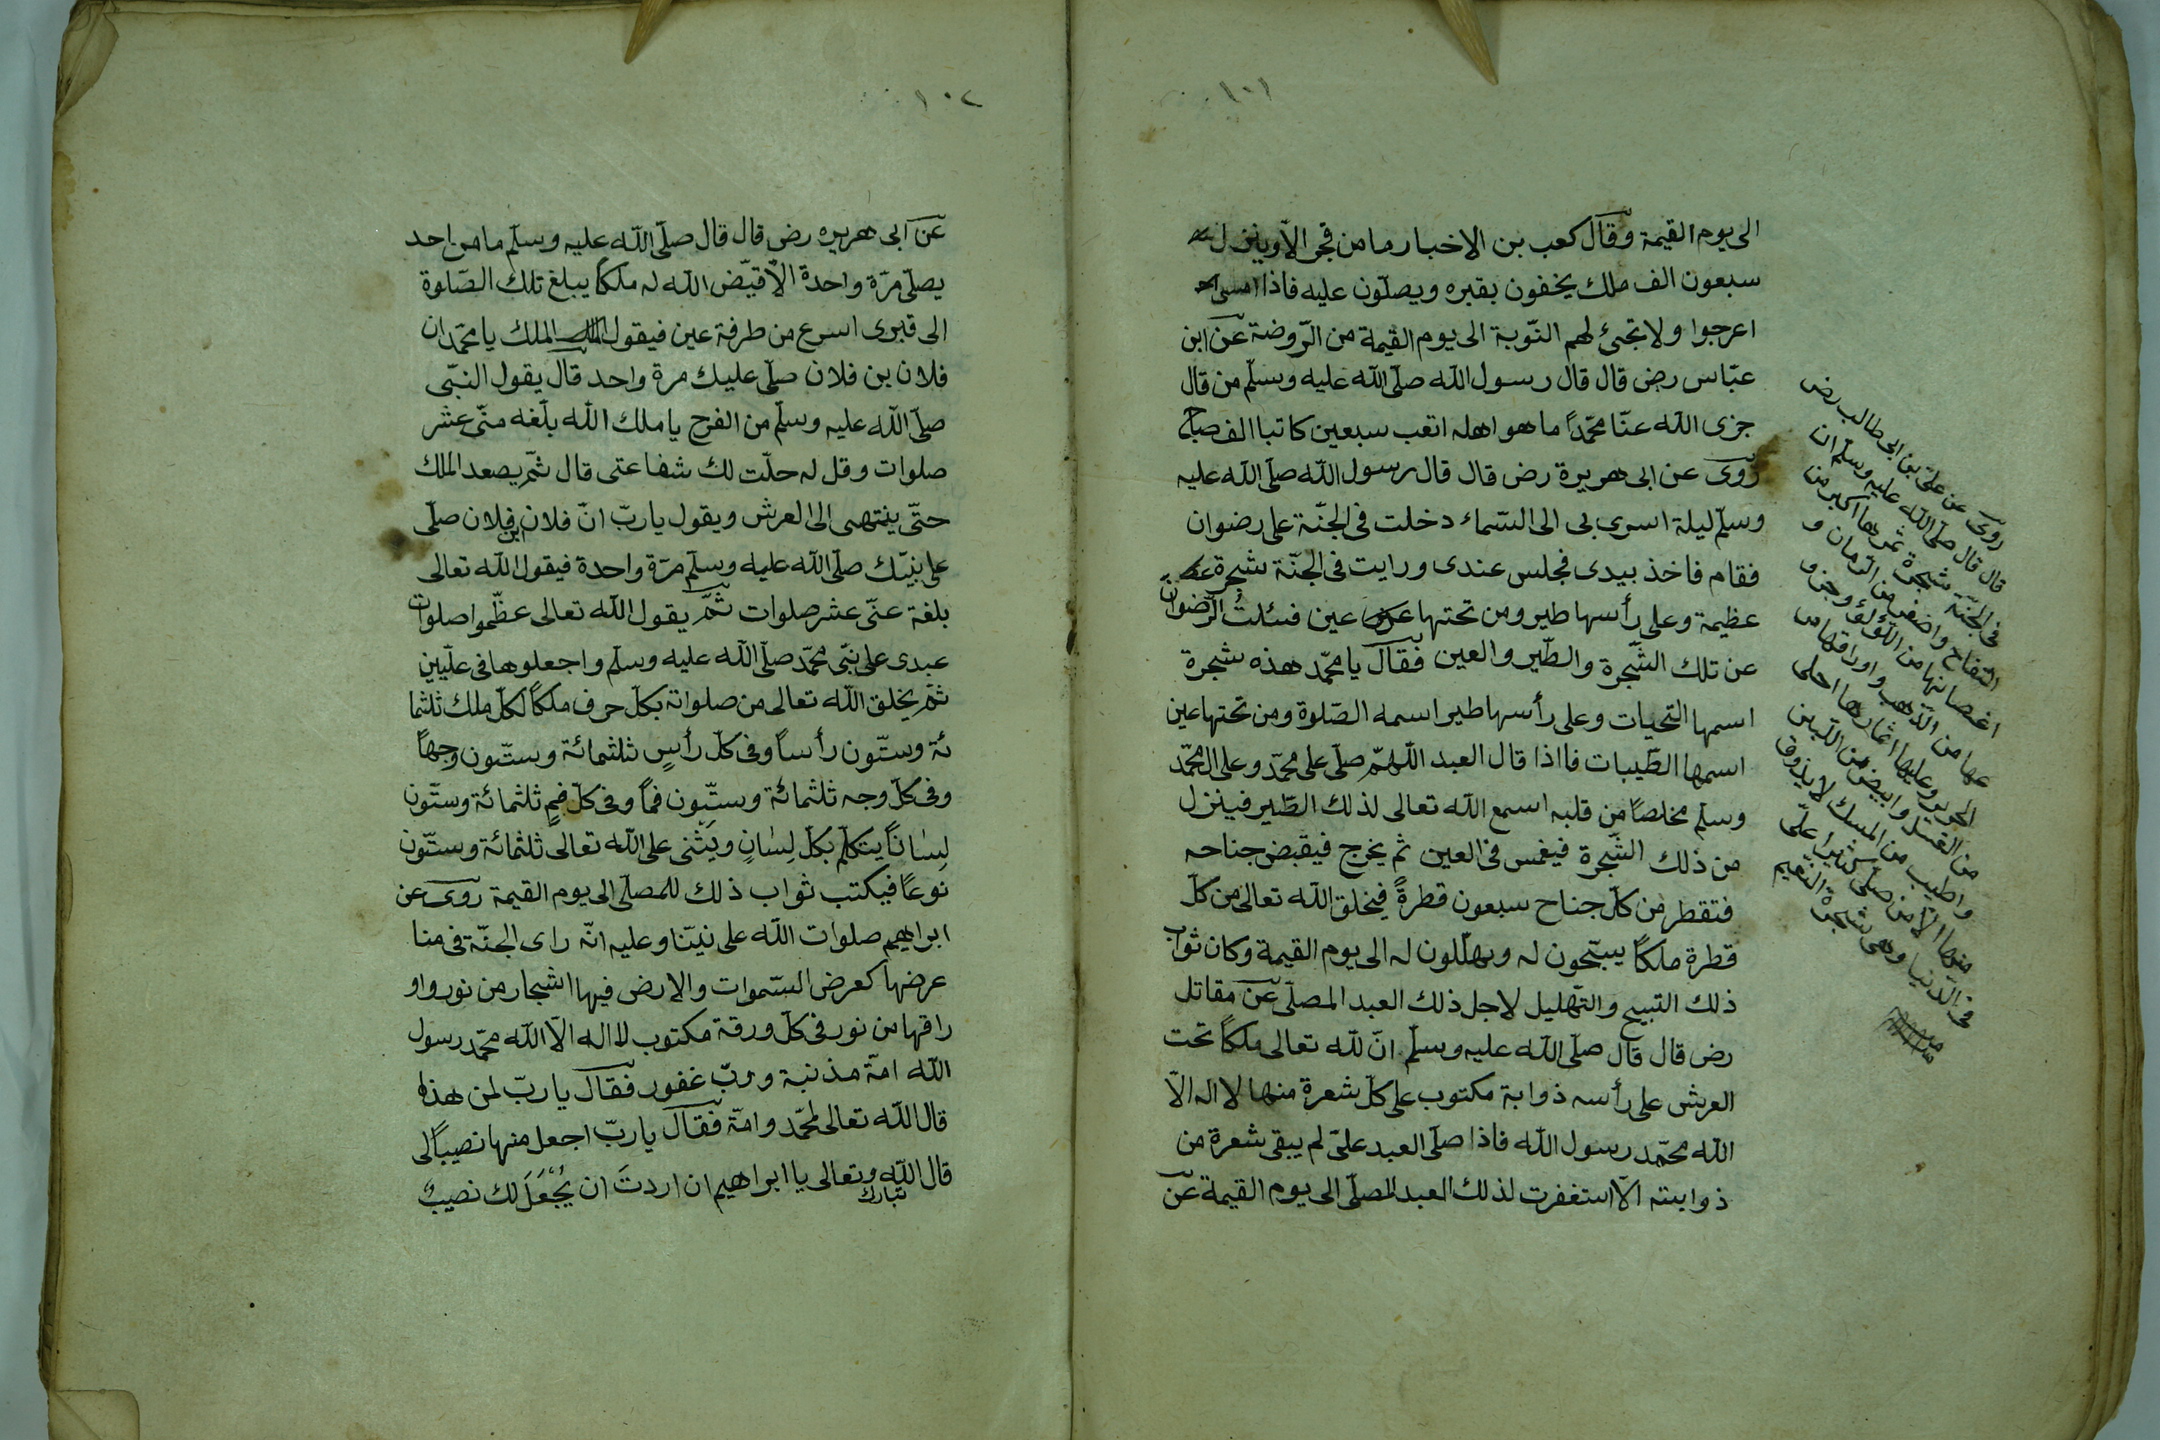 ١٠١
الى يوم القيمة وقال كعب بن الاخبار ما من فجر الا وينزل
سبعون الف ملك يخفون بقبره ويصلّون عليه فاذا امسى
اعرجوا ولا تجئ لهم النّوبة الى يوم القيمة من الرّوضة عن ابن
عبّاس رض قال قال رسول الله صلّى الله عليه وسلّم من قال
جزى الله عنّا محمّداً ما هو اهله اتعب سبعين كاتبا الف صباح
روى عن ابى هريرة رض قال قال رسول الله صلّى الله عليه
وسلّم ليلة اسرى بى الى السّماء دخلت فى الجنّة على رضوان
فقام فاخذ بيدى فجلس عندى ورايت فى الجنّة شجرة
عظيمة وعلى رأسها طير ومن تحتها عين فسئلت الرّضوان
عن تلك الشّجرة والطّير والعين فقال يا محمّد هذه شجرة
اسمها التحيات وعلى رأسها طير اسمه الصّلوة ومن تحتها عين
اسمها الطّيبات فااذا قال العبد اللّهمّ صلّى على محمّد وعلى ال محمّد
وسلّم مخلصاً من قلبه اسمع الله تعالى لذلك الطّير فينزل
من ذلك الشّجرة فيغمس فى العين ثم يخرج فيقبض جناحه
فتقطر من كلّ جناح سبعون قطرةً فيخلق الله تعالى من كلّ
قطرة ملكاً يسبّحون له ويهلّلون له الى يوم القيمة وكان ثواب
ذلك التسبيح والتّهليل لاجل ذلك العبد المصلّى عن مقاتل
رض قال قال صلّى الله عليه وسلّم انّ لله تعالى ملكاً تحت
العرش على رأسه ذوابة مكتوب على كلّ شعرة منها لا اله الّا
الله محمّد رسول الله فاذا صلّى العبد علىّ لم يبقى شعرة من
ذوابته الّا استغفرت لذلك العبد المصلّى الى يوم القيمة عن
روى عن علىّ بن ابى طالب رض
قال قال صلّى الله عليه وسلّم ان
فى الجنّة شجرة ثمرها اكبر من
التفاح واضغر من الرّمان و
اغصانها من اللّؤلؤ وجذو
عها من الذّهب واوراقها من
الحرير وعليها اثمارها احلى
من العسل وابيض من اللّبن
واطيب من المسك لا يذوق
منها الّا من صلّى كثيرا علىّ
فى الدّنيا وهى شجرة النّعيم
١٠٢
عن ابى هريره رض قال قال صلّى الله عليه وسلّم ما من احد
يصلّى مرّة واحدة الّا قيّض الله له ملكاً يبلغ تلك الصّلوة
الى قبرى اسرع من طرفة عين فيقول الملك يا محمّد ان
فلان بن فلان صلّى عليك مرة واحد قال يقول النبّى
صلّى الله عليه وسلّم من الفرح يا ملك الله بلّغه منّى عشر
صلوات وقل له حلّت لك شفاعتى قال ثمّ يصعد الملك
حتّى ينتهى الى العرش ويقول يا ربّ انّ فلان ابن فلان صلّى
على نبيّك صلّى الله عليه وسلّم مرّة واحدة فيقول الله تعالى
بلغة عنّى عشر صلوات ثمّ يقول الله تعالى عظّموا صلوات
عبدى على نبّى محمّد صلّى الله عليه وسلّم واجعلوها فى علّيين
ثمّ يخلق الله تعالى من صلواتة بكلّ حرف ملكاً لكلّ ملك ثلثما
ئة وستّون رأساً وفى كلّ رأسٍ ثلثمائة وستّون وجهاً
وفى كلّ وجه ثلثمائة وستّون فماً وفى كلّ فمٍ ثلثمائة وستّون
لِسٰاناً يتكلّم بكلّ لِسٰانٍ ويَثْنى على الله تعالى ثلثمائة وستّون
نوعاً فيكتب ثواب ذلك للمصلّى الى يوم القيمة روى عن
ابراهيم صلوات الله على نبيّنا وعليه انّه راى الجنّة فى منا
عرضها كعرض السّموات والارض فيها اشجار من نور واو
راقها من نور فى كلّ ورقة مكتوب لا اله الّا الله محمّد رسول
الله امّة مذنبة وربّ غفور فقال يا ربّ لمن هذا
قال الله تعالى لمحمّد وامّة فقال يا ربّ اجعل منها نصيباً لى
قال الله تبارك وتعالى يا ابراهيم ان اردتَ ان يُجْعَلَ لك نصيبٌ